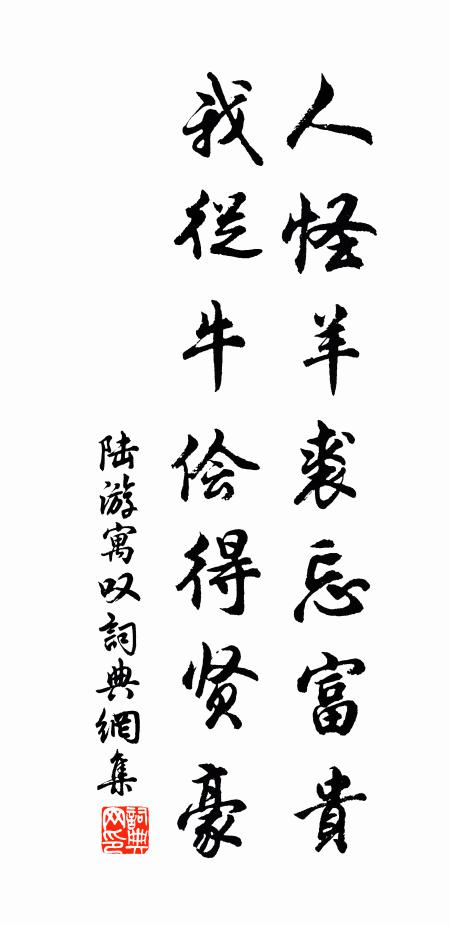 人怪羊裘忘富貴
我從牛侩得贤豪
陆游寓叹詞典網集
詞典网印